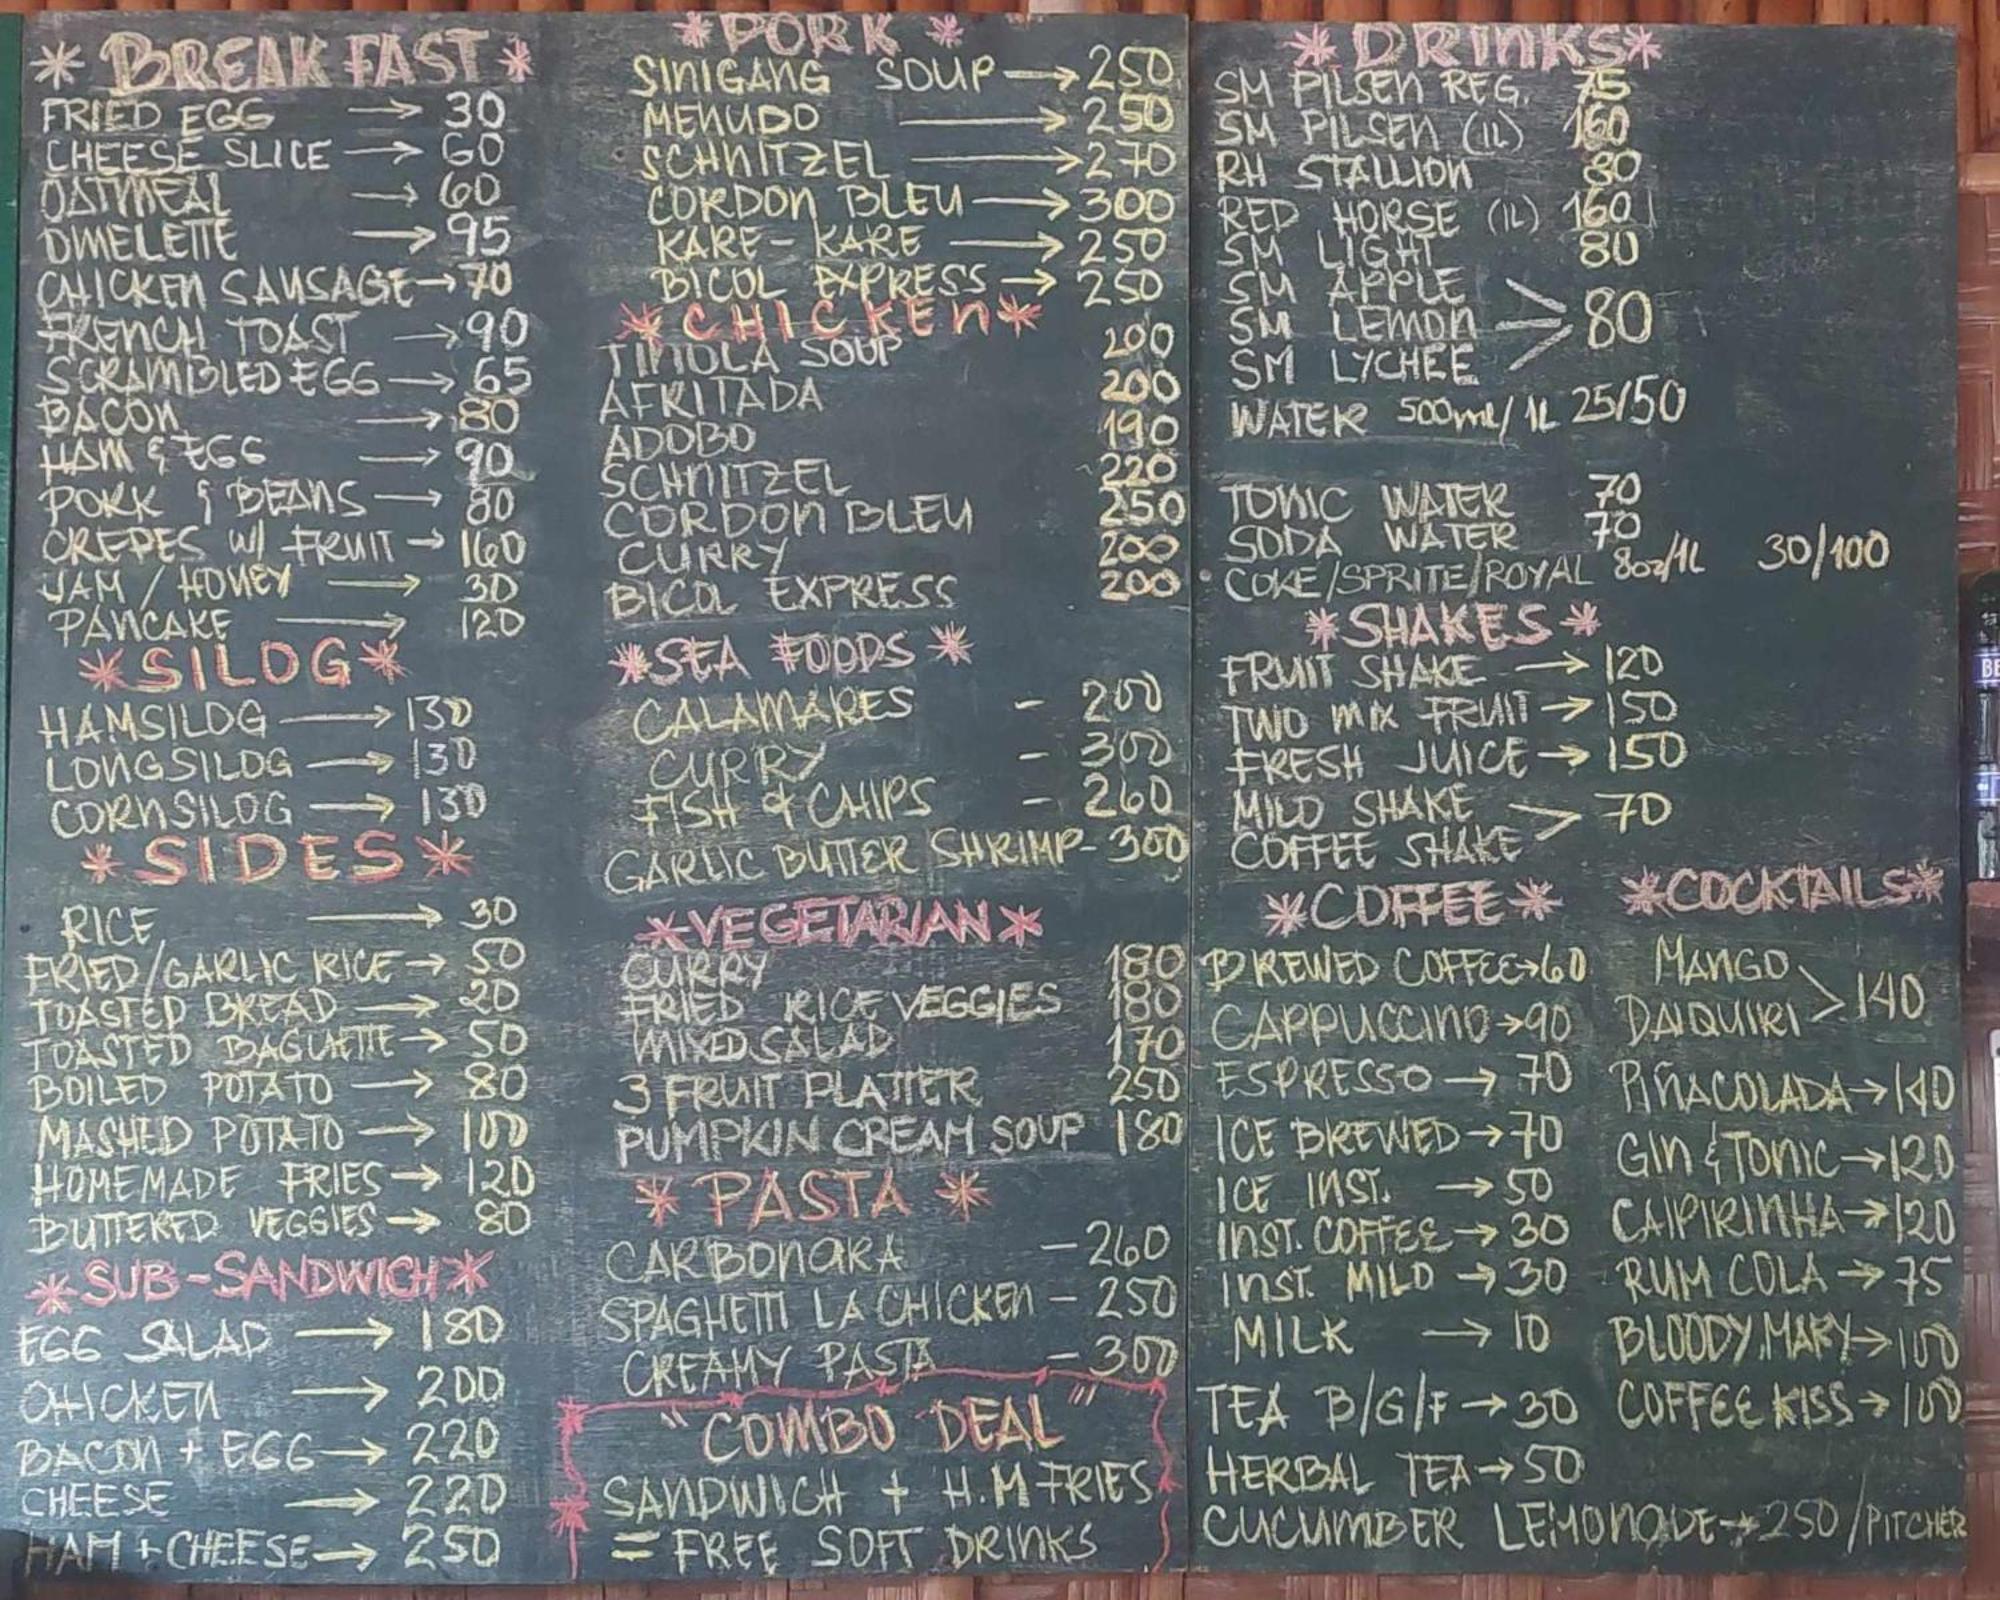 * BREAKFAST *
FRIED EGG → 30
CHEESE SLICE → 60
OATMEAL → 60
OMELETTE → 95
CHICKEN SAUSAGE → 70
FRENCH TOAST → 90
SCRAMBLED EGG → 65
BACON → 80
HAM & EGG → 90
PORK & BEANS → 80
CREPES W/ FRUIT → 160
JAM / HONEY → 30
PANCAKE → 120
* SILOG *
HAMSILOG → 130
LONGSILOG → 130
CORNSILOG → 130
* SIDES *
RICE → 30
FRIED/GARLIC RICE → 50
TOASTED BREAD → 20
TOASTED BAGUETTE → 50
BOILED POTATO → 80
MASHED POTATO → 100
HOMEMADE FRIES → 120
BUTTERED VEGGIES → 80
* SUB-SANDWICH *
EGG SALAD → 180
CHICKEN → 200
BACON + EGG → 220
CHEESE → 220
HAM + CHEESE → 250
* PORK *
SINIGANG SOUP → 250
MENUDO → 250
SCHNITZEL → 270
CORDON BLEU → 300
KARE-KARE → 250
BICOL EXPRESS → 250
* CHICKEN *
TINOLA SOUP 200
AFRITADA 200
ADOBO 190
SCHNITZEL 220
CORDON BLEU 250
CURRY 200
BICOL EXPRESS 200
* SEA FOODS *
CALAMARES - 200
CURRY - 300
FISH & CHIPS - 260
GARLIC BUTTER SHRIMP - 300
* VEGETARIAN *
CURRY 180
FRIED RICE VEGGIES 180
MIXED SALAD 170
3 FRUIT PLATTER 250
PUMPKIN CREAM SOUP 180
* PASTA *
CARBONARA - 260
SPAGHETTI LA CHICKEN - 250
CREAMY PASTA - 300
"COMBO DEAL"
SANDWICH + H.M FRIES
= FREE SOFT DRINKS
* DRINKS *
SM PILSEN REG. 75
SM PILSEN (1L) 160
RH STALLION 80
RED HORSE (1L) 160
SM LIGHT 80
SM APPLE
SM LEMON > 80
SM LYCHEE
WATER 500ml/1L 25/50
TONIC WATER 70
SODA WATER 70
COKE/SPRITE/ROYAL 8oz/1L 30/100
* SHAKES *
FRUIT SHAKE → 120
TWO MIX FRUIT → 150
FRESH JUICE → 150
MILO SHAKE > 70
COFFEE SHAKE
* COFFEE *
BREWED COFFEE → 60
CAPPUCCINO → 90
ESPRESSO → 70
ICE BREWED → 70
ICE INST. → 50
INST. COFFEE → 30
INST. MILO → 30
MILK → 10
TEA B/G/F → 30
HERBAL TEA → 50
CUCUMBER LEMONADE → 250 / PITCHER
* COCKTAILS *
MANGO
DAIQUIRI > 140
PIÑACOLADA → 140
GIN & TONIC → 120
CAIPIRINHA → 120
RUM COLA → 75
BLOODY MARY → 100
COFFEE KISS → 100